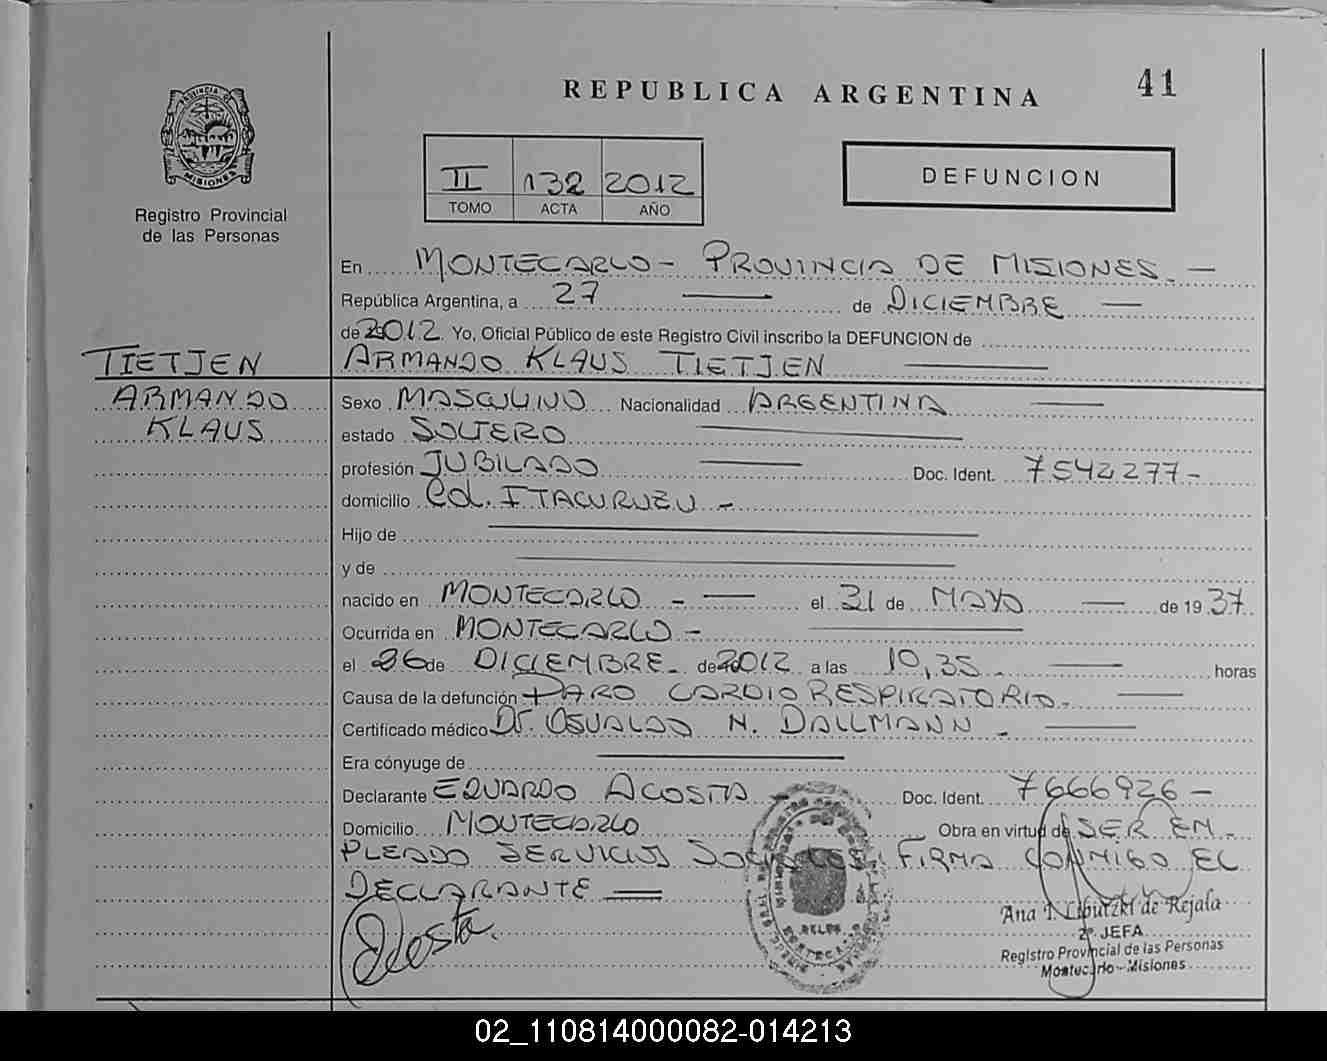 41
REPUBLICA ARGENTINA
PROVINCIA DE
MISIONES
Registro Provincial
de las Personas
II 132 2012
TOMO ACTA AÑO
DEFUNCION
En MONTECARLO - PROVINCIA DE MISIONES. -
República Argentina, a 27 de DICIEMBRE
de 2012. Yo, Oficial Público de este Registro Civil inscribo la DEFUNCION de
TIETJEN
ARMANDO
KLAUS
ARMANDO KLAUS TIETJEN
Sexo MASCULINO Nacionalidad ARGENTINA
estado SOLTERO
profesión JUBILADO Doc. Ident. 7542277-
domicilio Col. ITACURUZU -
Hijo de
y de
nacido en MONTECARLO - el 31 de MAYO de 19 37
Ocurrida en MONTECARLO -
el 26 de DICIEMBRE. de 2012 a las 10,35. horas
Causa de la defunción PARO CARDIO RESPIRATORIO.
Certificado médico Dr. OSVALDO N. DALLMANN -
Era cónyuge de
Declarante EDUARDO ACOSTA Doc. Ident. 7666926 -
Domicilio MONTECARLO Obra en virtud de SER EM-
PLEADO SERVICIOS SOCIALES. FIRMA CONMIGO EL
DECLARANTE =
Acosta.
Ana I. Liputzki de Rejala
2º JEFA
Registro Provincial de las Personas
Montecarlo - Misiones
02_110814000082-014213